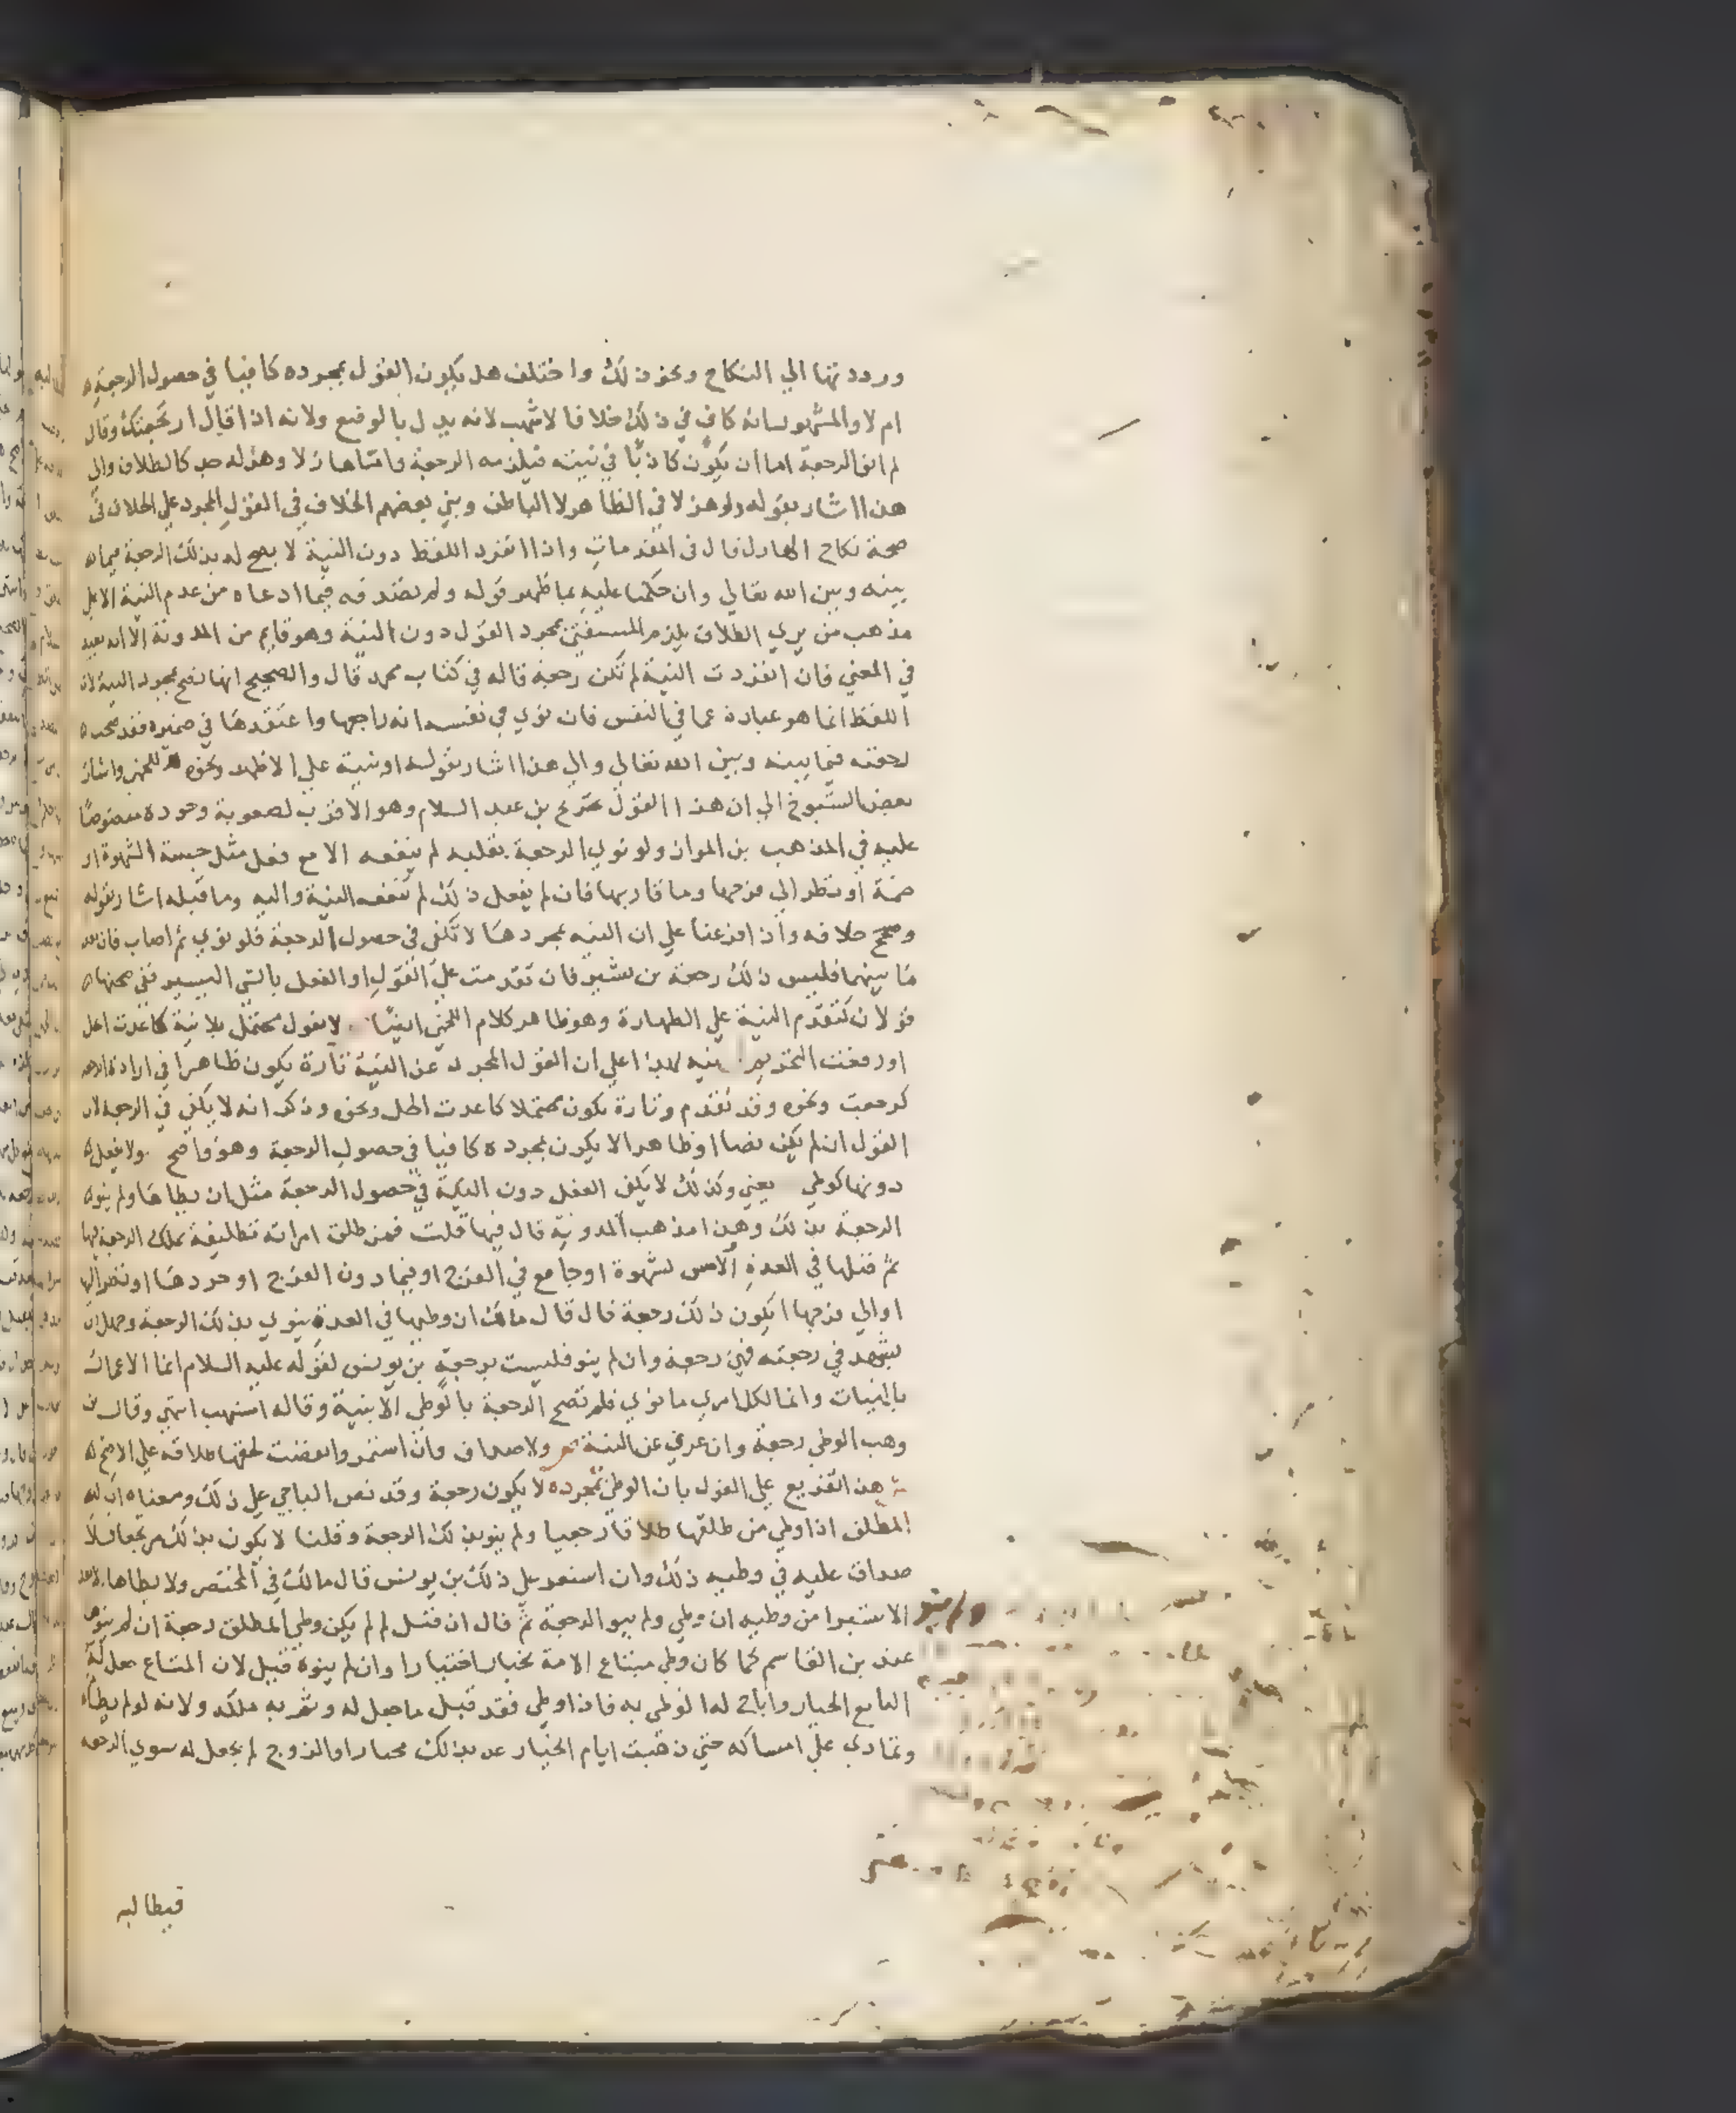 ورددتها الي النكاح ونحو ذلك واختلف هل يكون القول بمجرده كافيا في حصول الرجعة
ام لا والمشهور انه كاف في ذلك خلافا لاشهب لانه يدل بالوضع ولانه اذا قال ارتجعتك وقال
لم انو الرجعة اما ان يكون كاذبا في نيته فيلزمه الرجعة واما هازلا وهزله جد كالطلاق والي
هذا اشار بقوله ولو هزلا في الظاهر لا الباطن وبني بعضهم الخلاف في القول المجرد علي الخلاف في
صحة نكاح الهازل قال في المقدمات واذا انفرد اللفظ دون النية لا يصح له بذلك الرجعة فيما
بينه وبين الله تعالي وان حكمنا عليه بما ظهر من قوله ولم نصدقه فيما ادعاه من عدم النية الا علي
مذهب من يري الطلاق يلزم المستفتي بمجرد القول دون النية وهو قايم من المدونة الا انه بعيد
في المعني فان انفردت النية لم تكن رجعة قاله في كتاب محمد قال والصحيح انها تصح بمجرد النية لان
اللفظ انما هو عبارة عما في النفس فان نوي في نفسه انه راجعها واعتقدها في ضميره فقد صحت
رجعته فيما بينه وبين الله تعالي والي هذا اشار بقوله او نية علي الاظهر ونحوه للخمي واشار
بعض الشيوخ الي ان هذا القول مخرج بن عبد السلام وهو الاقرب لصعوبة وجوده منصوصا
عليه في المذهب بن المواز ولو نوي الرجعة بقلبه لم ينفعه الا مع فعل مثل جسة الشهوة او
ضمة او نظر الي فرجها وما قاربها فان لم يفعل ذلك لم تنفعه النية واليه وما قبله اشار بقوله
وصحح خلافه واذا فرعنا علي ان النية بمجردها لا تكفي في حصول الرجعة فلو نوي ثم اصاب فان بعد
ما بينهما فليس ذلك رجعة بن بشير فان تقدمت علي القول او الفعل بالشي اليسير ففي صحتها
قولان كتقدم النية علي الطهارة وهو ظاهر كلام اللخمي ايضا لا بقول محتمل بلا نية كاعدت الحل
او رفعت التحريم نبه بهذا علي ان القول المجرد عن النية تارة يكون ظاهرا في ارادة الرجعة
كرجعت ونحوه وقد تقدم وتارة يكون محتملا كاعدت الحل ونحوه وذكر انه لا يكفي في الرجعة لان
القول ان لم يكن نصا او ظاهرا لا يكون بمجرده كافيا في حصول الرجعة وهو واضح ولا بفعل
دونها كوطي يعني وكذلك لا يكفي الفعل دون النية في حصول الرجعة مثل ان يطاها ولم ينو
الرجعة بذلك وهذا مذهب المدونة قال فيها قلت فمن طلق امراته تطليقة يملك الرجعة فيها
ثم قبلها في العدة لمس لشهوة او جامع في الفرج او فيما دون الفرج او جردها او نظر اليها
او الي فرجها ايكون ذلك رجعة قال قال مالك ان وطيها في العدة ينوي بذلك الرجعة وجهل ان
يشهد في رجعته فهي رجعة وان لم ينو فليست برجعة بن يونس لقوله عليه السلام انما الاعمال
بالنيات وانما لكل امري ما نوي فلم تصح الرجعة بالوطي الا بنية وقاله اشهب انتهي وقال بن
وهب الوطي رجعة وان عري عن النية ولا صداق وان استمر وانقضت لحقها طلاقه علي الاصح
هذا تفريع علي القول بان الوطي بمجرده لا يكون رجعة وقد نص الباجي علي ذلك ومعناه ان
المطلق اذا وطي من طلقها طلاقا رجعيا ولم ينو بذلك الرجعة وقلنا لا يكون بذلك مرتجعا فلا
صداق عليه في وطيه ذلك وان استمر علي ذلك بن يونس قال مالك في المختصر ولا يطاها الا بعد
الاستبرا من وطيه ان وطي ولم ينو الرجعة ثم قال ان قيل لم لم يكن وطي المطلق رجعة ان لم ينوها
عند بن القاسم كما كان وطي مبتاع الامة بخيار اختيارا وان لم ينوه قيل لان المبتاع جعل له
البايع الخيار واباح له الوطي به فاذا وطي فقد قبل ما جعل له وتم به ملكه ولانه لو لم يطا
وتمادي علي امساكه حتي ذهبت ايام الخيار عد بذلك مختارا والزوج لم يجعل له سوي الرجعة
فيطالبه